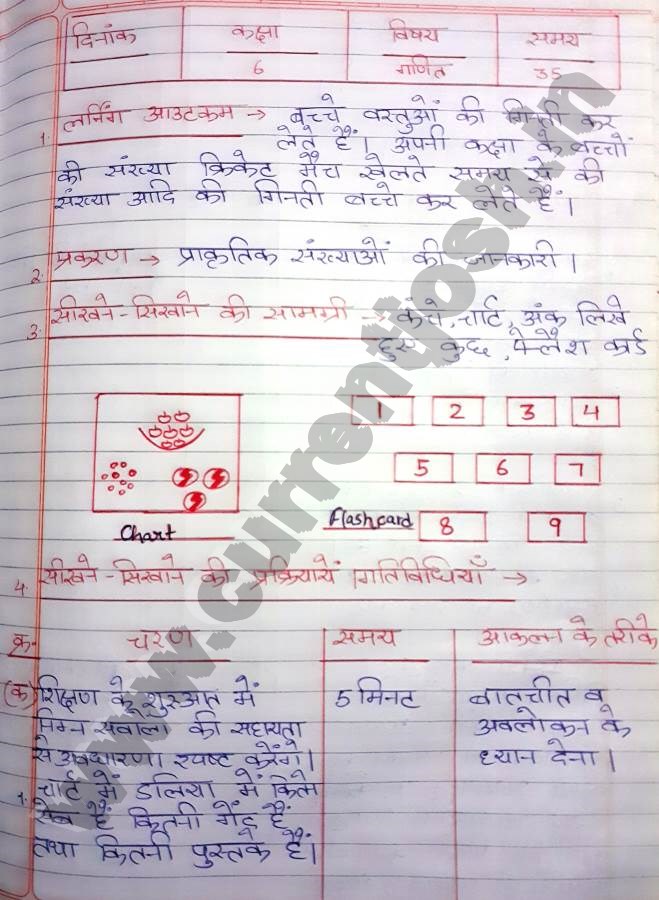 दिनांक कक्षा विषय समय
6 गणित 35
1. लर्निंग आउटकम → बच्चे वस्तुओं की गिनती कर
लेते हैं। अपनी कक्षा के बच्चों
की संख्या क्रिकेट मैच खेलते समय से की
संख्या आदि की गिनती बच्चे कर लेते हैं।
2. प्रकरण → प्राकृतिक संख्याओं की जानकारी।
3. सीखने-सिखाने की सामग्री → कंचे, चार्ट, अंक लिखे
हुए कुछ, फ्लैश कार्ड
1 2 3 4
5 6 7
Chart Flashcard 8 9
4. सीखने-सिखाने की प्रक्रियायें गतिबिधियाँ →
क्र. चरण समय आकलन के तरीके
(क) शिक्षण के शुरुआत में 5 मिनट बातचीत व
निम्न सवालों की सहायता अवलोकन के
से अवधारणा स्पष्ट करेंगे। ध्यान देना।
1. चार्ट में डलिया में कितने
सेब हैं कितनी गेंद हैं
तथा कितनी पुस्तके हैं।
www.currentjosh.in